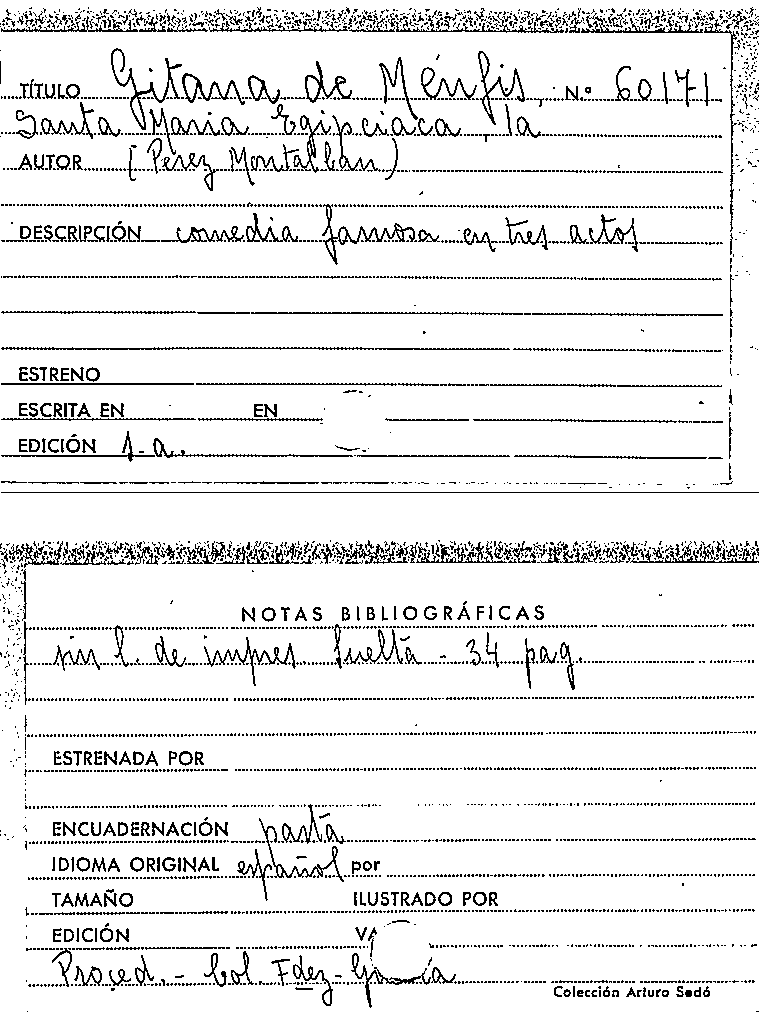 TÍTULO Gitana de Ménfis, N.º 60171
Santa Maria Egipciaca, la
AUTOR (Pérez Montalbán)
DESCRIPCIÓN comedia famosa en tres actos
ESTRENO
ESCRITA EN EN
EDICIÓN s.a.
NOTAS BIBLIOGRÁFICAS
sin l. de impres suelta - 34 pag.
ESTRENADA POR
ENCUADERNACIÓN pasta
IDIOMA ORIGINAL español por
TAMAÑO ILUSTRADO POR
EDICIÓN
Proced. - Col. Fdez-
Colección Arturo Sedó